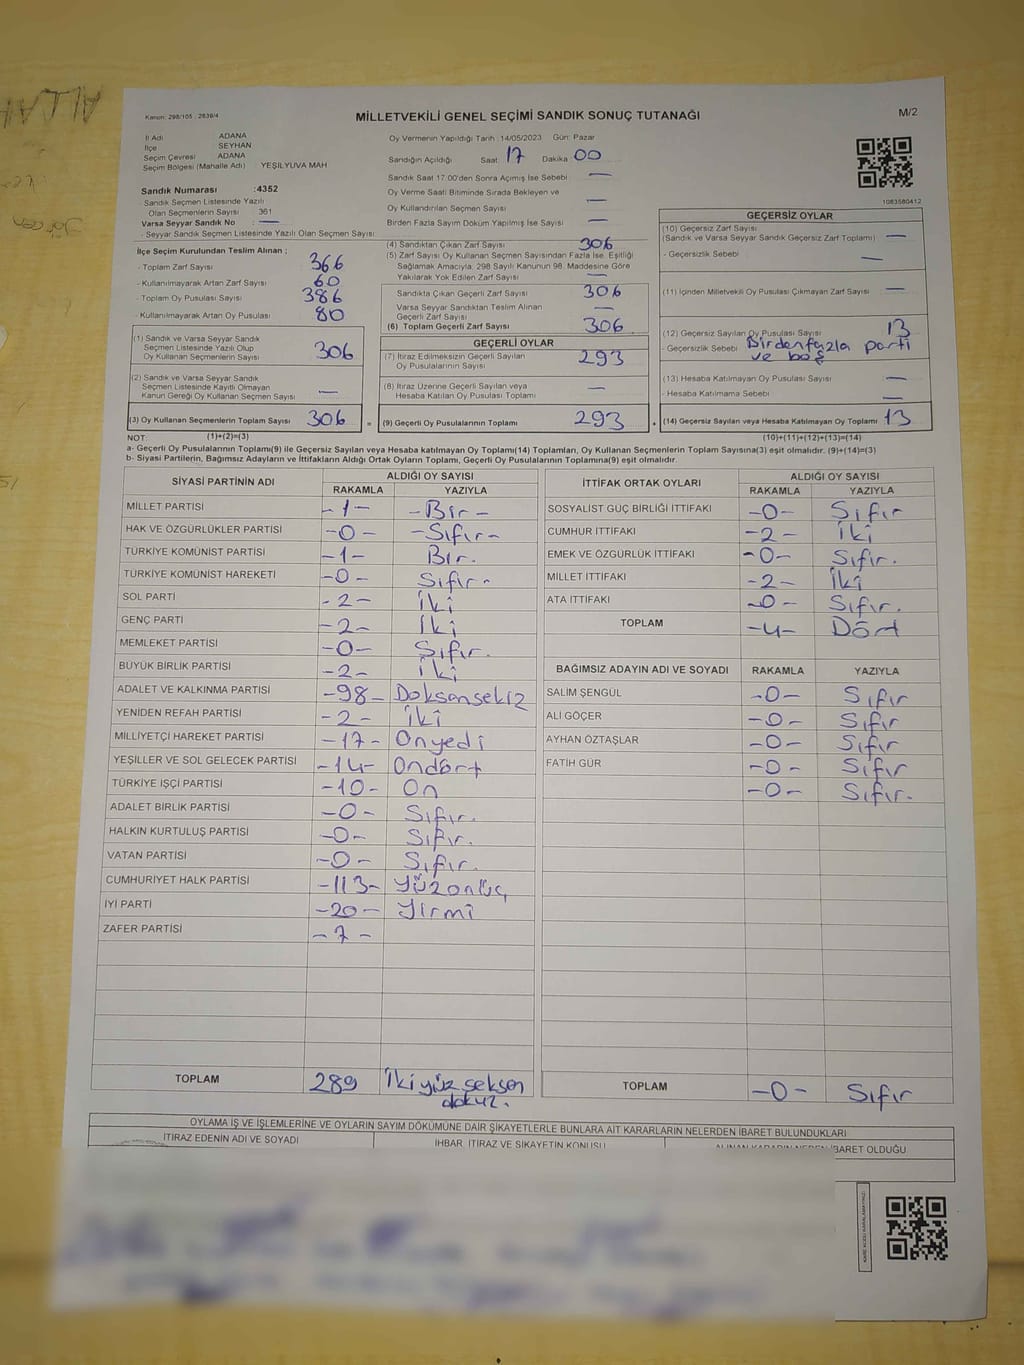 ALLAH
Kanun: 298/105 ; 2839/4
MİLLETVEKİLİ GENEL SEÇİMİ SANDIK SONUÇ TUTANAĞI
M/2
İl Adı ADANA
İlçe SEYHAN
Seçim Çevresi ADANA
Seçim Bölgesi (Mahalle Adı) YEŞİLYUVA MAH
Sandık Numarası :4352
Sandık Seçmen Listesinde Yazılı
Olan Seçmenlerin Sayısı 361
Varsa Seyyar Sandık No : —
- Seyyar Sandık Seçmen Listesinde Yazılı Olan Seçmen Sayısı:
Oy Vermenin Yapıldığı Tarih :14/05/2023 Gün: Pazar
Sandığın Açıldığı Saat: 17 Dakika: 00
Sandık Saat 17.00'den Sonra Açılmış İse Sebebi : —
Oy Verme Saati Bitiminde Sırada Bekleyen ve
Oy Kullandırılan Seçmen Sayısı —
Birden Fazla Sayım Döküm Yapılmış İse Sayısı —
1083580412
İlçe Seçim Kurulundan Teslim Alınan ;
- Toplam Zarf Sayısı 366
- Kullanılmayarak Artan Zarf Sayısı 60
- Toplam Oy Pusulası Sayısı 386
- Kullanılmayarak Artan Oy Pusulası 80
(1) Sandık ve Varsa Seyyar Sandık
Seçmen Listesinde Yazılı Olup
Oy Kullanan Seçmenlerin Sayısı 306
(2) Sandık ve Varsa Seyyar Sandık
Seçmen Listesinde Kayıtlı Olmayan
Kanun Gereği Oy Kullanan Seçmen Sayısı —
(3) Oy Kullanan Seçmenlerin Toplam Sayısı 306 =
(1)+(2)=(3)
(4) Sandıktan Çıkan Zarf Sayısı 306
(5) Zarf Sayısı Oy Kullanan Seçmen Sayısından Fazla İse, Eşitliği
Sağlamak Amacıyla; 298 Sayılı Kanunun 98. Maddesine Göre
Yakılarak Yok Edilen Zarf Sayısı —
Sandıkta Çıkan Geçerli Zarf Sayısı 306
Varsa Seyyar Sandıktan Teslim Alınan
Geçerli Zarf Sayısı —
(6) Toplam Geçerli Zarf Sayısı 306
GEÇERLİ OYLAR
(7) İtiraz Edilmeksizin Geçerli Sayılan
Oy Pusulalarının Sayısı 293
(8) İtiraz Üzerine Geçerli Sayılan veya
Hesaba Katılan Oy Pusulası Toplamı —
(9) Geçerli Oy Pusulalarının Toplamı 293 +
GEÇERSİZ OYLAR
(10) Geçersiz Zarf Sayısı
(Sandık ve Varsa Seyyar Sandık Geçersiz Zarf Toplamı) —
- Geçersizlik Sebebi —
(11) İçinden Milletvekili Oy Pusulası Çıkmayan Zarf Sayısı —
(12) Geçersiz Sayılan Oy Pusulası Sayısı 13
- Geçersizlik Sebebi Birdenfazla parti
ve boş
(13) Hesaba Katılmayan Oy Pusulası Sayısı —
- Hesaba Katılmama Sebebi —
(14) Geçersiz Sayılan veya Hesaba Katılmayan Oy Toplamı 13
(10)+(11)+(12)+(13)=(14)
NOT:
a- Geçerli Oy Pusulalarının Toplamı(9) ile Geçersiz Sayılan veya Hesaba katılmayan Oy Toplamı(14) Toplamları, Oy Kullanan Seçmenlerin Toplam Sayısına(3) eşit olmalıdır. (9)+(14)=(3)
b- Siyasi Partilerin, Bağımsız Adayların ve İttifakların Aldığı Ortak Oyların Toplamı, Geçerli Oy Pusulalarının Toplamına(9) eşit olmalıdır.
SİYASİ PARTİNİN ADI ALDIĞI OY SAYISI
RAKAMLA YAZIYLA
MİLLET PARTİSİ -1- -Bir-
HAK VE ÖZGÜRLÜKLER PARTİSİ -0- -Sıfır-
TÜRKİYE KOMÜNİST PARTİSİ -1- Bir.
TÜRKİYE KOMÜNİST HAREKETİ -0- Sıfır-
SOL PARTİ -2- İki
GENÇ PARTİ -2- İki
MEMLEKET PARTİSİ -0- Sıfır.
BÜYÜK BİRLİK PARTİSİ -2- İki
ADALET VE KALKINMA PARTİSİ -98- Doksansekiz
YENİDEN REFAH PARTİSİ -2- İki
MİLLİYETÇİ HAREKET PARTİSİ -17- Onyedi
YEŞİLLER VE SOL GELECEK PARTİSİ -14- Ondört
TÜRKİYE İŞÇİ PARTİSİ -10- On
ADALET BİRLİK PARTİSİ -0- Sıfır.
HALKIN KURTULUŞ PARTİSİ -0- Sıfır.
VATAN PARTİSİ -0- Sıfır.
CUMHURİYET HALK PARTİSİ -113- Yüzonüç
İYİ PARTİ -20- Yirmi
ZAFER PARTİSİ -7-
TOPLAM 289 İkiyüz seksen
dokuz.
İTTİFAK ORTAK OYLARI ALDIĞI OY SAYISI
RAKAMLA YAZIYLA
SOSYALİST GÜÇ BİRLİĞİ İTTİFAKI -0- Sıfır
CUMHUR İTTİFAKI -2- İki
EMEK VE ÖZGÜRLÜK İTTİFAKI -0- Sıfır.
MİLLET İTTİFAKI -2- İki
ATA İTTİFAKI -0- Sıfır.
TOPLAM -4- Dört
BAĞIMSIZ ADAYIN ADI VE SOYADI RAKAMLA YAZIYLA
SALİM ŞENGÜL -0- Sıfır
ALİ GÖÇER -0- Sıfır
AYHAN ÖZTAŞLAR -0- Sıfır
FATİH GÜR -0- Sıfır
-0- Sıfır.
TOPLAM -0- Sıfır
OYLAMA İŞ VE İŞLEMLERİNE VE OYLARIN SAYIM DÖKÜMÜNE DAİR ŞİKAYETLERLE BUNLARA AİT KARARLARIN NELERDEN İBARET BULUNDUKLARI
İTİRAZ EDENİN ADI VE SOYADI İHBAR, İTİRAZ VE ŞİKAYETİN KONUSU ALINAN KARARIN NEDEN İBARET OLDUĞU
KARE KODU KARALAMAYINIZ!